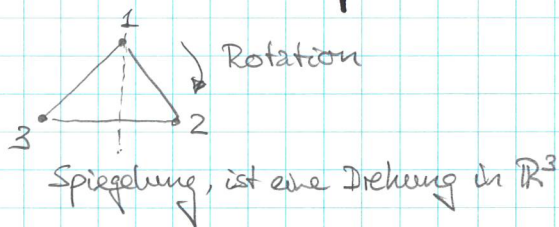 1
Rotation
3
2
Spiegelung, ist eine Drehung in ℝ³